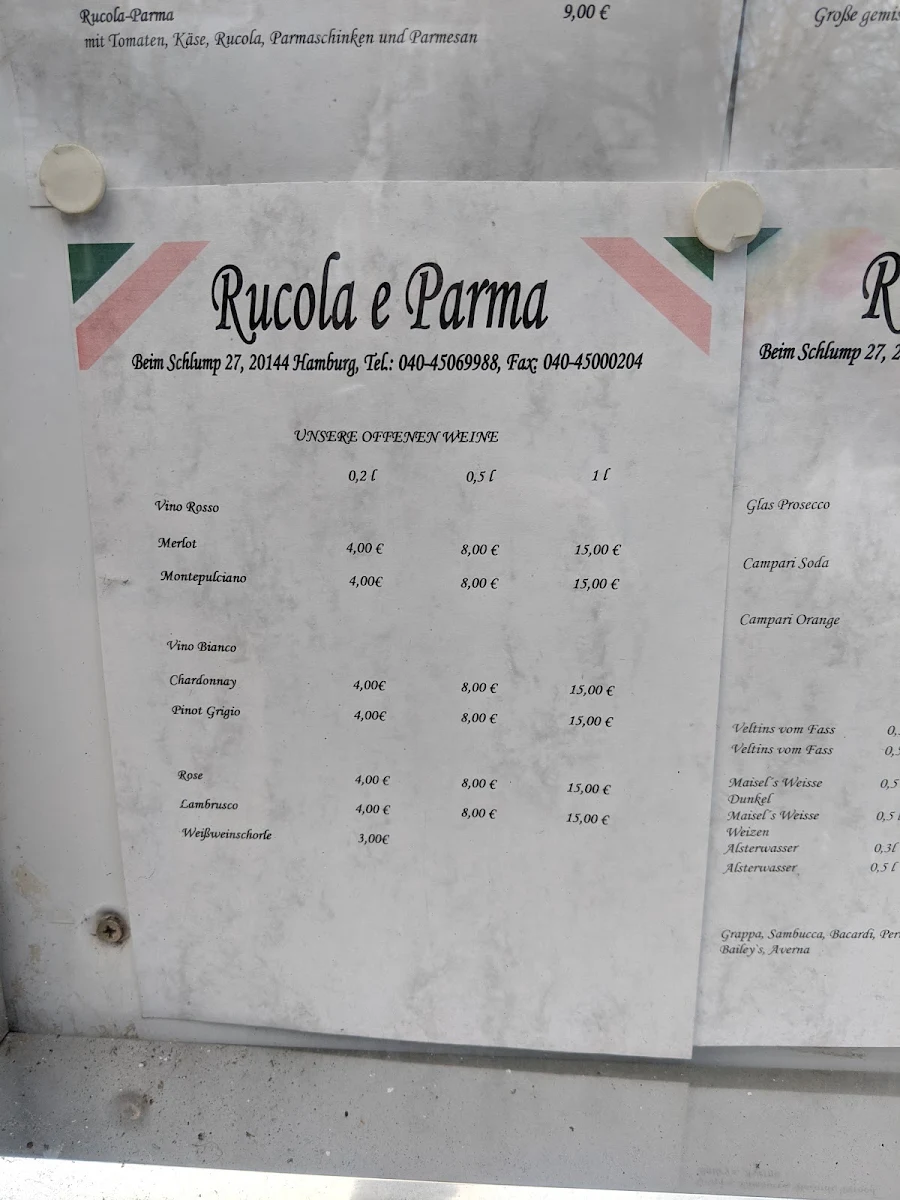 Rucola-Parma 9,00 €
mit Tomaten, Käse, Rucola, Parmaschinken und Parmesan
Große
Rucola e Parma
Beim Schlump 27, 20144 Hamburg, Tel.: 040-45069988, Fax: 040-45000204
UNSERE OFFENEN WEINE
0,2 l 0,5 l 1 l
Vino Rosso
Merlot 4,00 € 8,00 € 15,00 €
Montepulciano 4,00€ 8,00 € 15,00 €
Vino Bianco
Chardonnay 4,00€ 8,00 € 15,00 €
Pinot Grigio 4,00€ 8,00 € 15,00 €
Rose 4,00 € 8,00 € 15,00 €
Lambrusco 4,00 € 8,00 € 15,00 €
Weißweinschorle 3,00€
R
Beim Schlump 27, 2
Glas Prosecco
Campari Soda
Campari Orange
Veltins vom Fass 0,
Veltins vom Fass 0,5
Maisel's Weisse 0,5
Dunkel
Maisel's Weisse 0,5 l
Weizen
Alsterwasser 0,3l
Alsterwasser 0,5 l
Grappa, Sambucca, Bacardi,
Bailey's, Averna